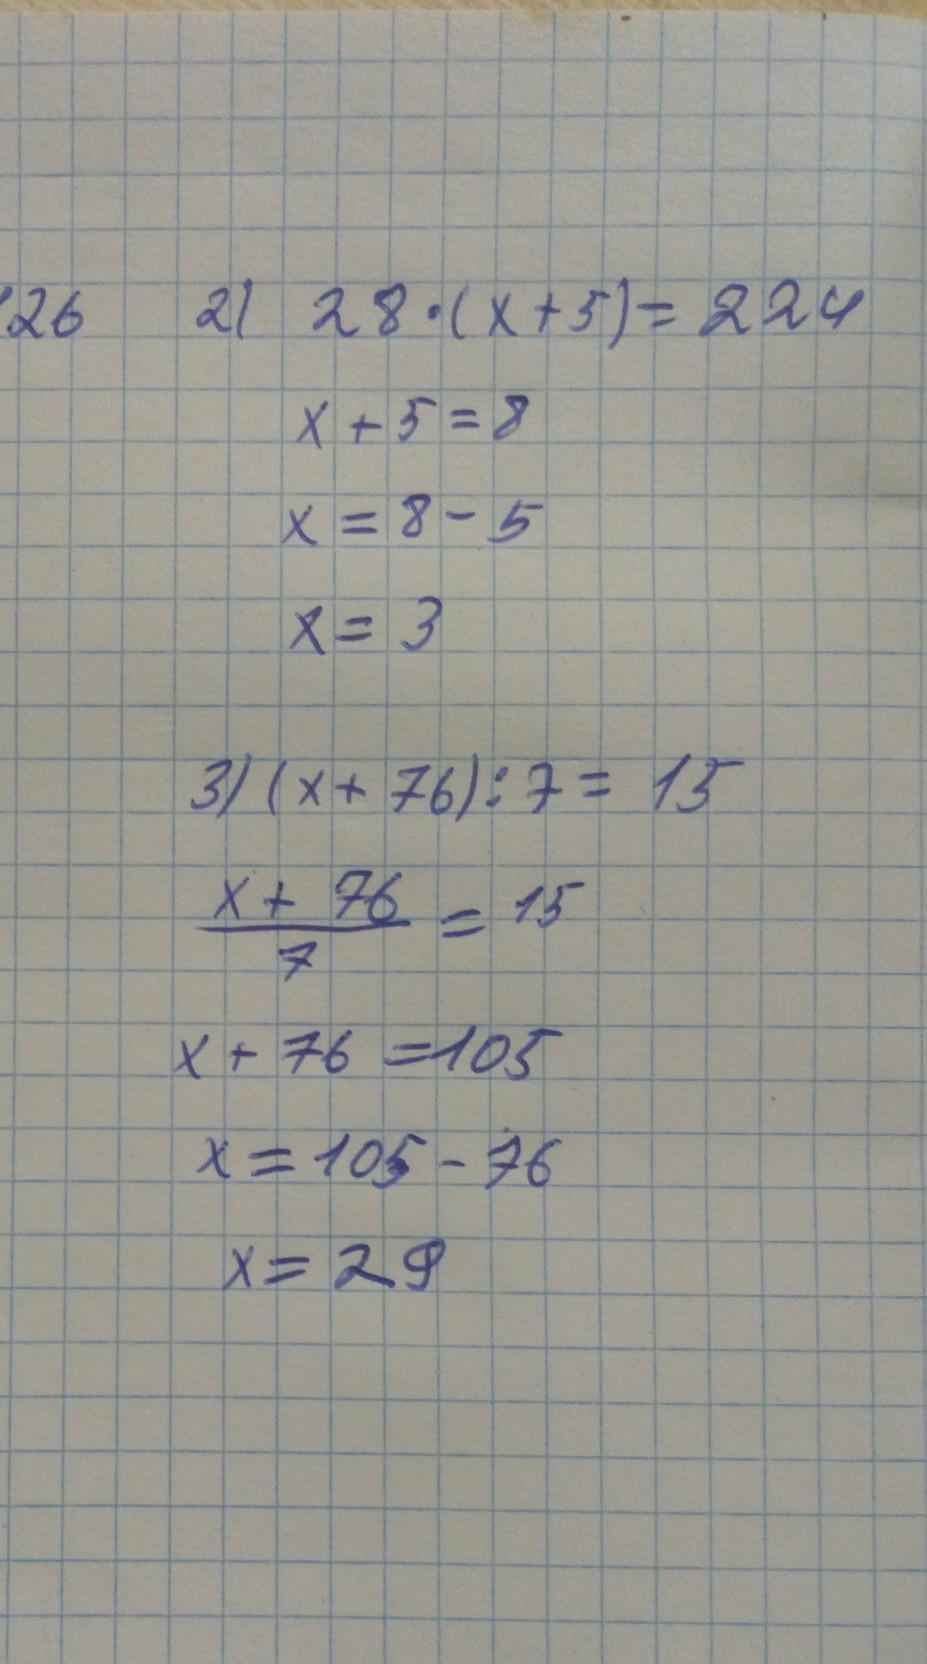 126 2) 28·(x+5)=224
x+5=8
x=8-5
x=3
3) (x+76):7=15
x+76
— = 15
7
x+76=105
x=105-76
x=29